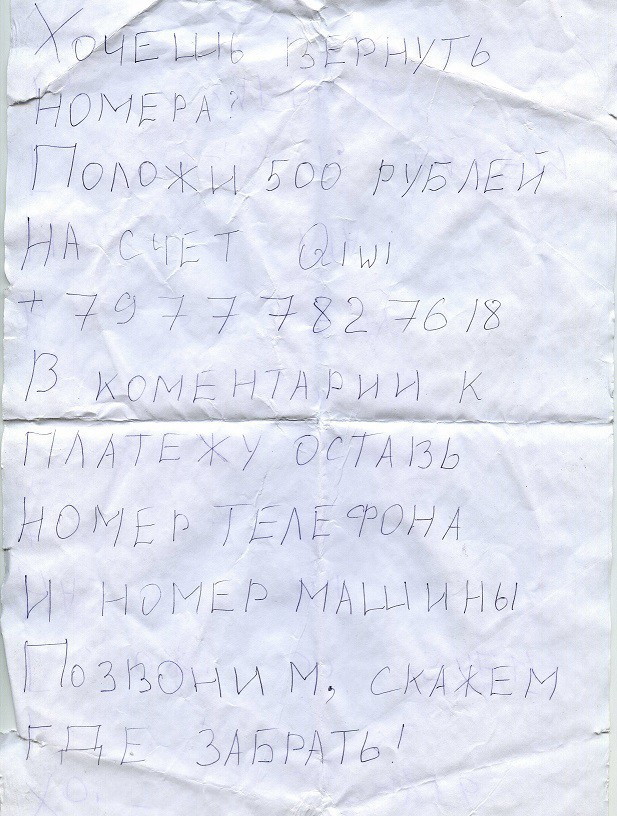 Хочешь вернуть
номера?
Положи 500 рублей
на счет Qiwi
+ 7977 782 76 18
В коментарии к
платежу оставь
номер телефона
и номер машины
Позвоним, скажем
где забрать!